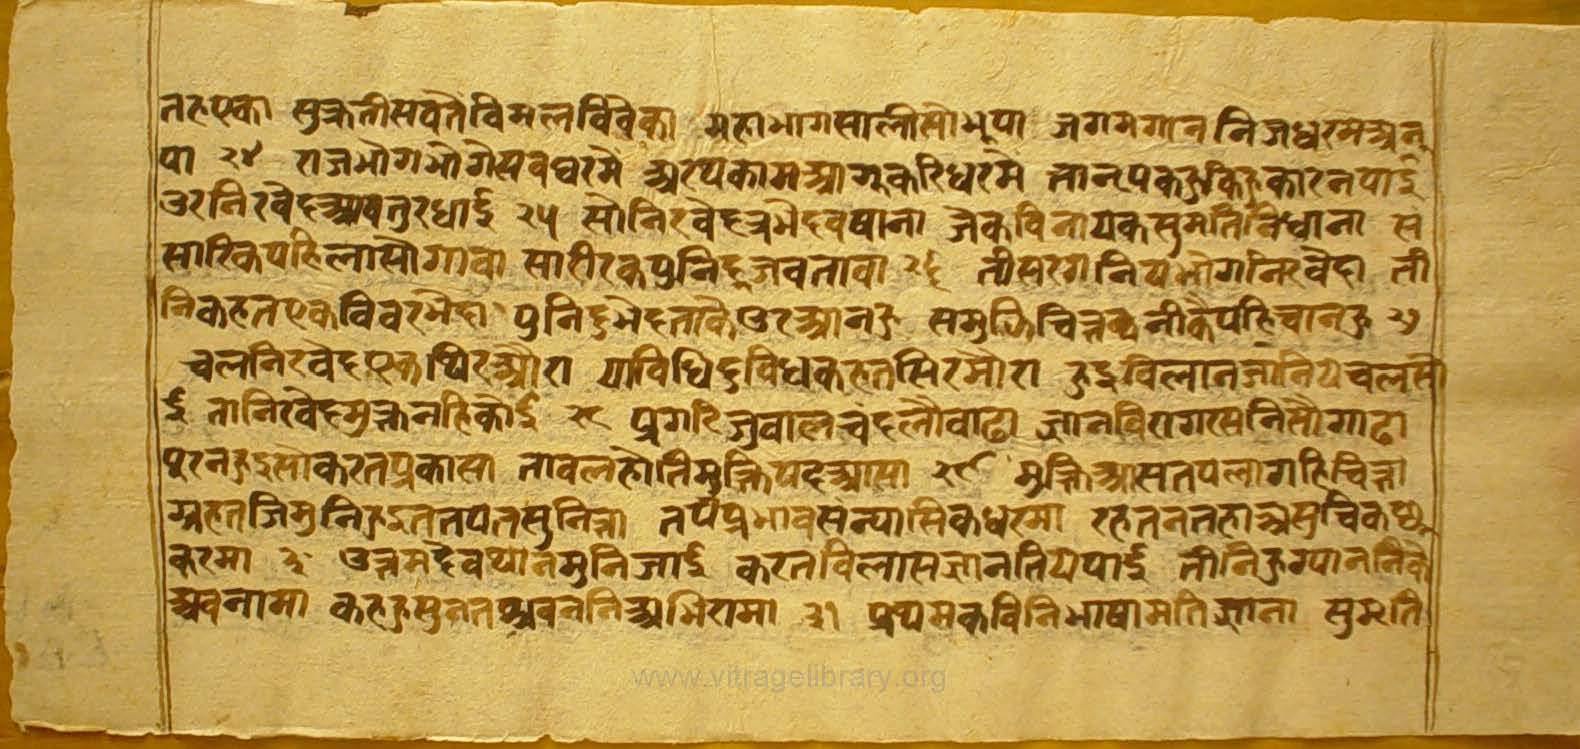 तहएका सुक्रतीसवतेविमलविवेका महाभागसालीसोभूपा जगमगान निजधरमअनू
पा २४ राजभोगभोगेसबघरमै अरथकामआगूकरिधरमै तानृपकहुकिहुकारनपाई
उरनिरवेदआवतुरधाई २५ सोनिरवेदत्रभैदबषाना जेकविनायकसुमतिनिधाना स
सारिकपहिलासोगावा सारीरकपुनिदूजबतावा २६ तीसरगनियभोगनिरवेदा ती
निकहतएकविवरभेदा पुनिदुभेदताकेउरआनहु समुझिचित्तनीकेपहिचानहु २७
चलनिरवेदएकथिरऔरा याविधिदुविधकहतसिरमौरा हुइविलानजानियेचलसो
ई तानिरवेदमुक्तनहिकोई २८ प्रगटिजुवालचंदलौवाढा ज्ञानविरागरसनिसौगाढा
पूरनहुइसोकरतप्रकासा तावलहोतिमुक्तिपदआसा २९ मुक्तिआसतपलागहिचित्ता
ग्रहतजिमुनिहुइततपतसुनित्ता तपप्रभावसंन्यासिकधरमा रहतनतहाअसुचिक
करमा ३० उत्तमदेवथानमुनिजाई करतविलासज्ञाननिधिपाई तीनिहुग्यान
अवनामा कहहुसुनतश्रवननिअभिरामा ३१ प्रथमकविनिभाषामतिज्ञाना सुमति
www.vitragelibrary.org